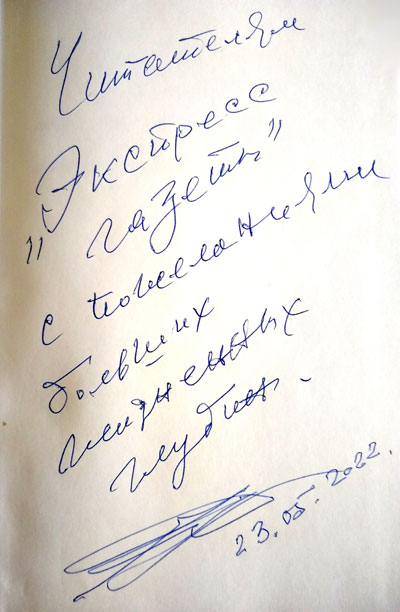 Читателям
Экспресс
"газеты"
с пожеланиями
больших
жизненных
глубин.
23.05.2022.